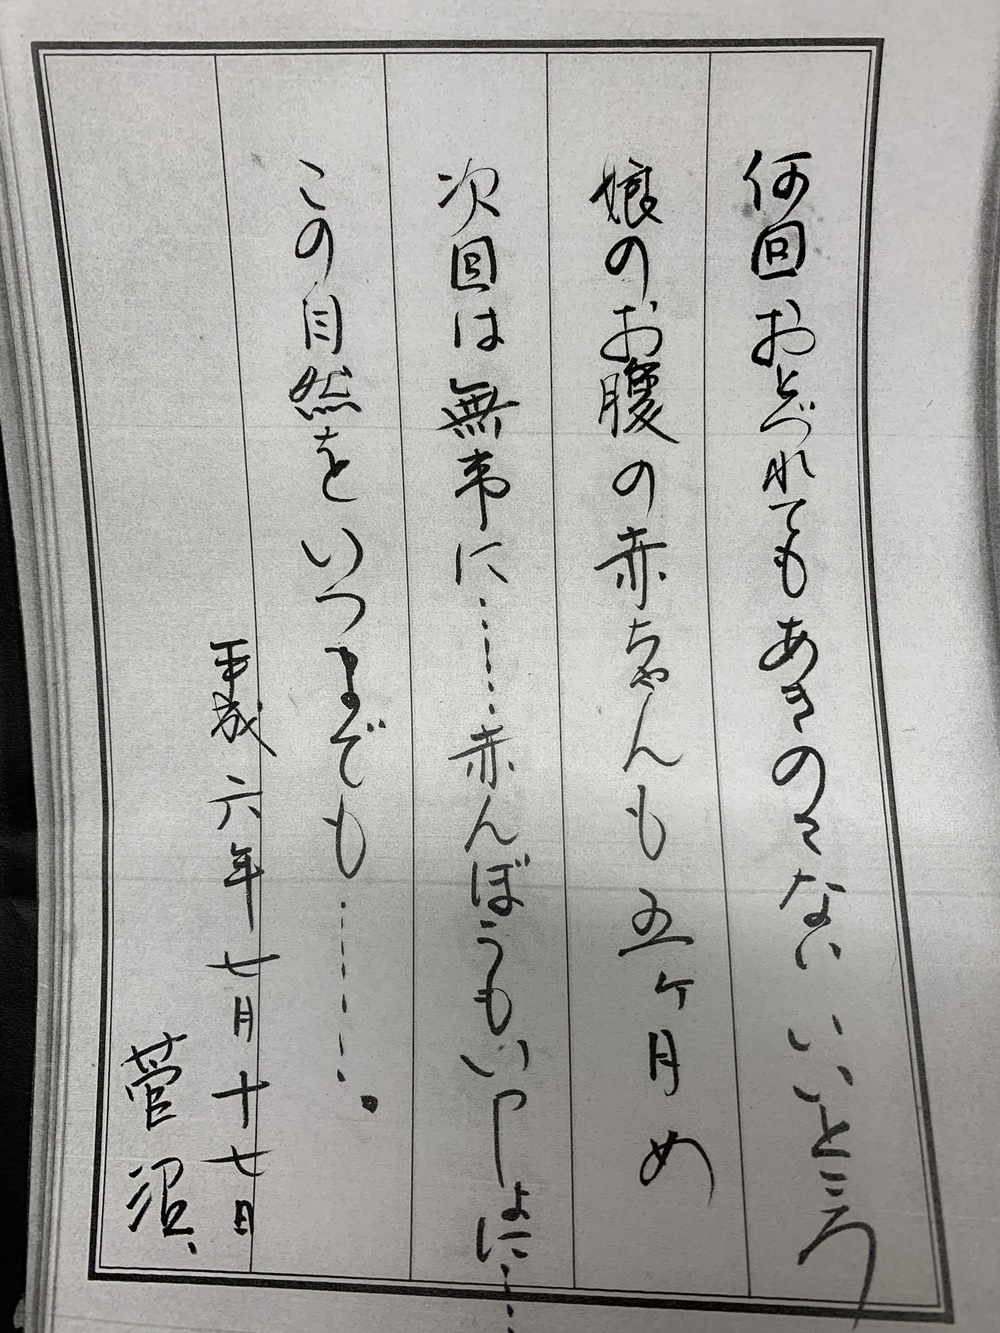 何回おとづれてもあきのこない いいところ
娘のお腹の赤ちゃんも五ヶ月め
次回は無事に……赤んぼうもいっしょに……
この自然をいつまでも………。
平成六年七月十七日
菅沼